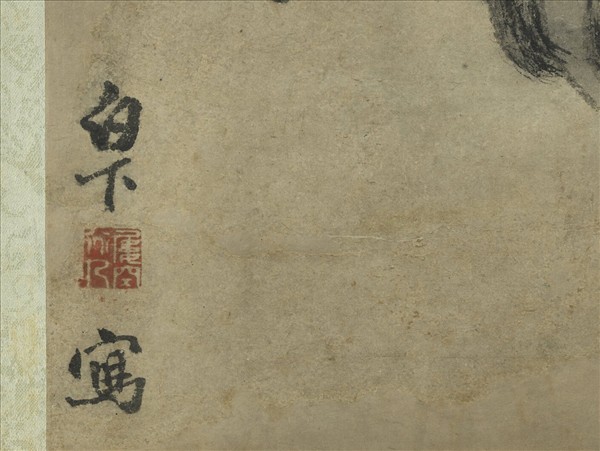 白下
寫